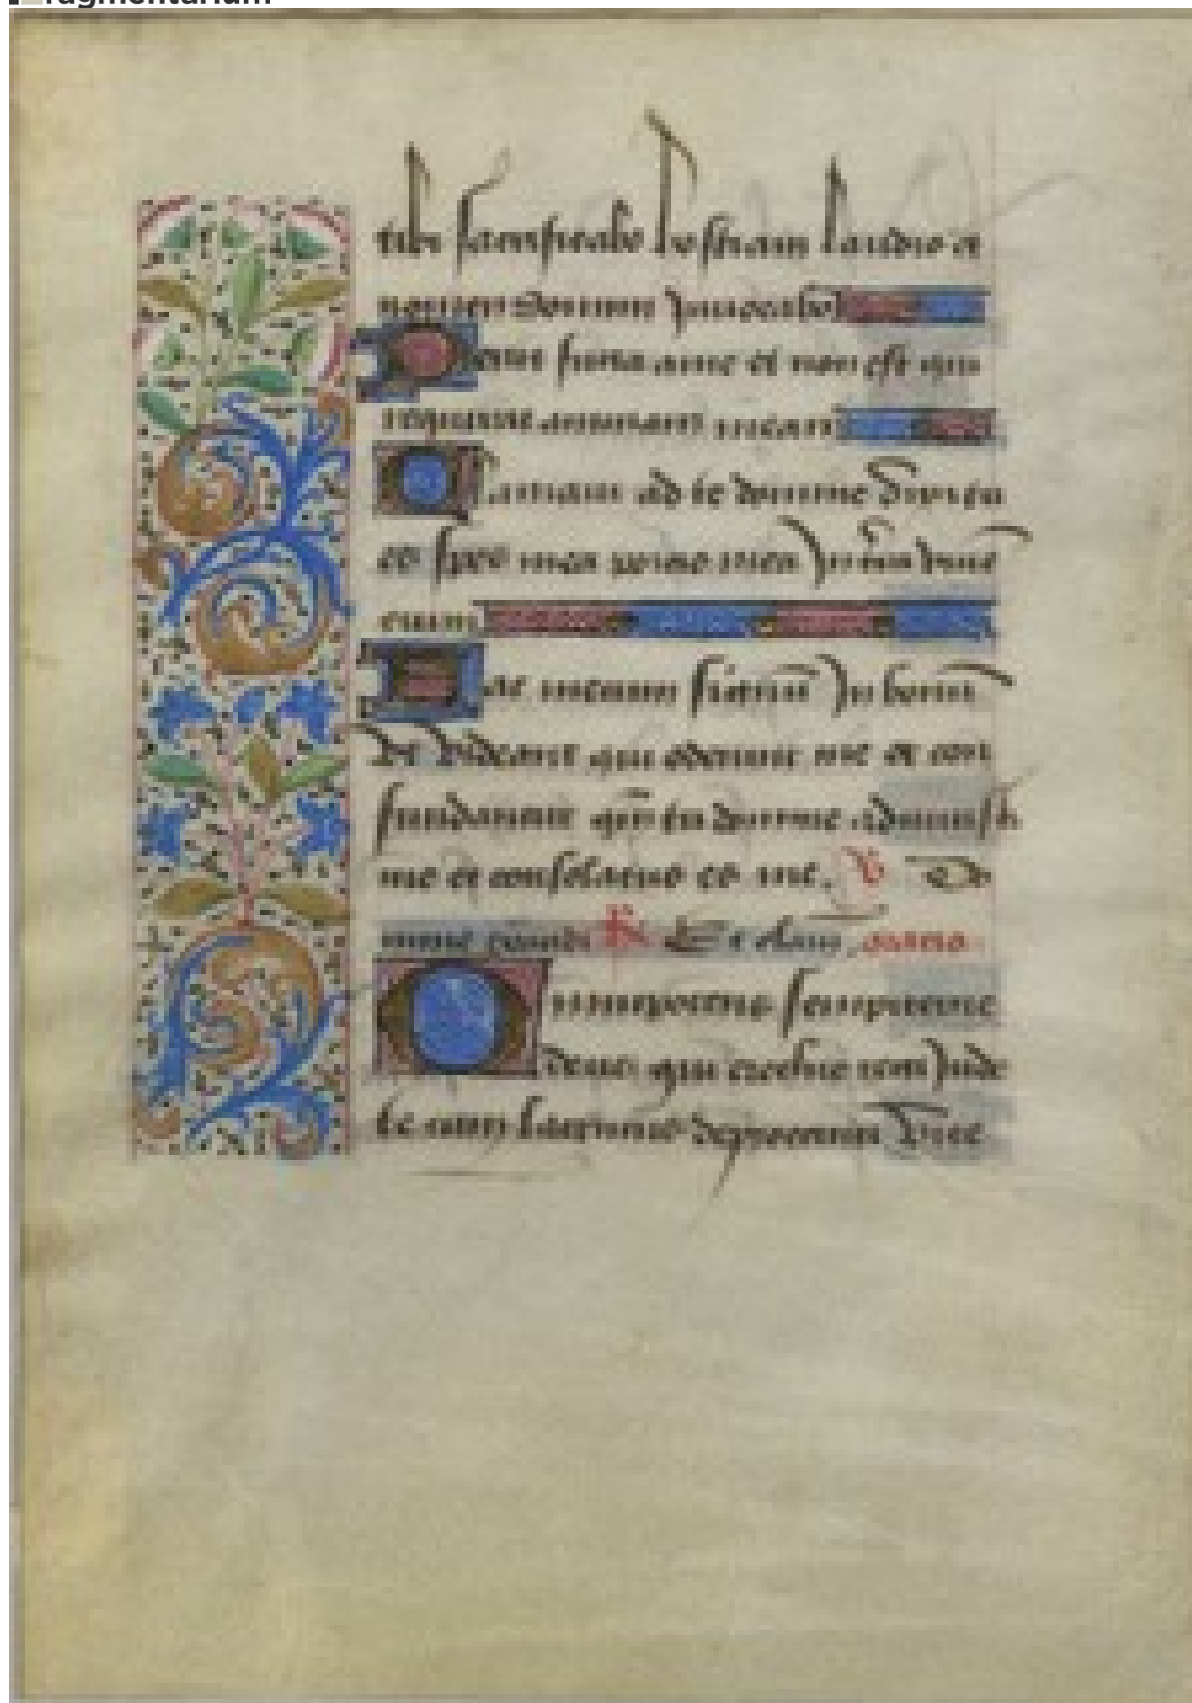 ragmentarium
tibi sacrificabo hostiam laudis et
nomen domini Invocabo
Periit fuga a me et non est qui
requirat animam meam
Clamavi ad te domine dixi tu
es spes mea portio mea In tr̄a vivē
cium
Fac mecum signū In bonū
vt videant qui oderunt me et con
fundantur qm̄ tu domine adiuvisti
me et consolatus es me. V Do
mine exaudi R Et clam. oratio
Omnipotens sempiterne
deus qui ezechie regi Jude
te cum lacrimis deprecanti vite